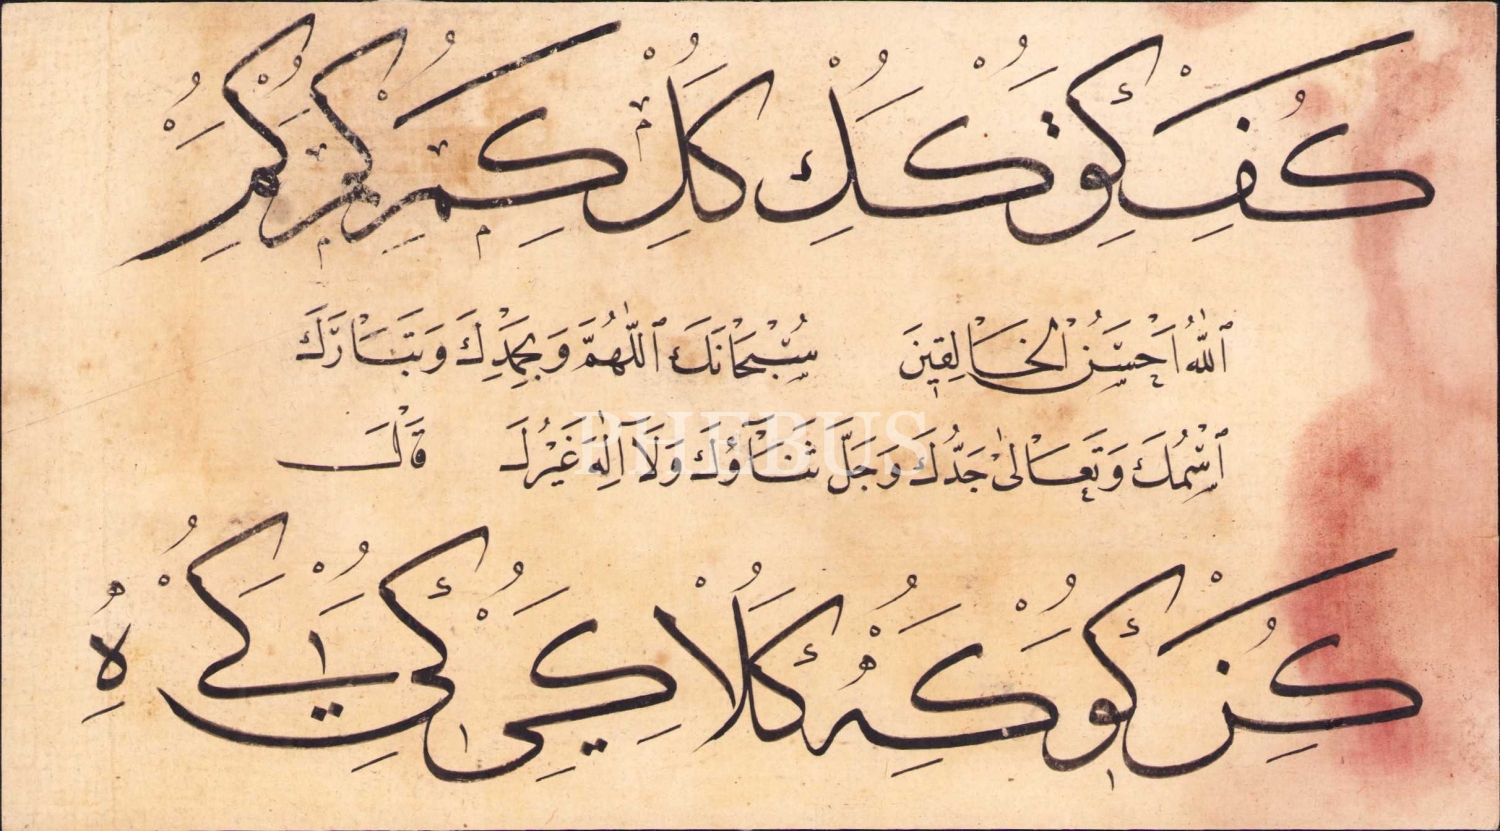 كف كق كك كل كم كم كم
ٱللّٰهُ اَحْسَنُ الْخَالِقِينَ سُبْحَانَكَ ٱللّٰهُمَّ وَبِحَمْدِكَ وَتَبَارَكَ
ٱسْمُكَ وَتَعَالٰى جَدُّكَ وَجَلَّ ثَنَاۤؤُكَ وَلَاۤ اِلٰهَ غَيْرُكَ قَالَ
كن كو كه كلا كى كى كے ه
PHEBUS